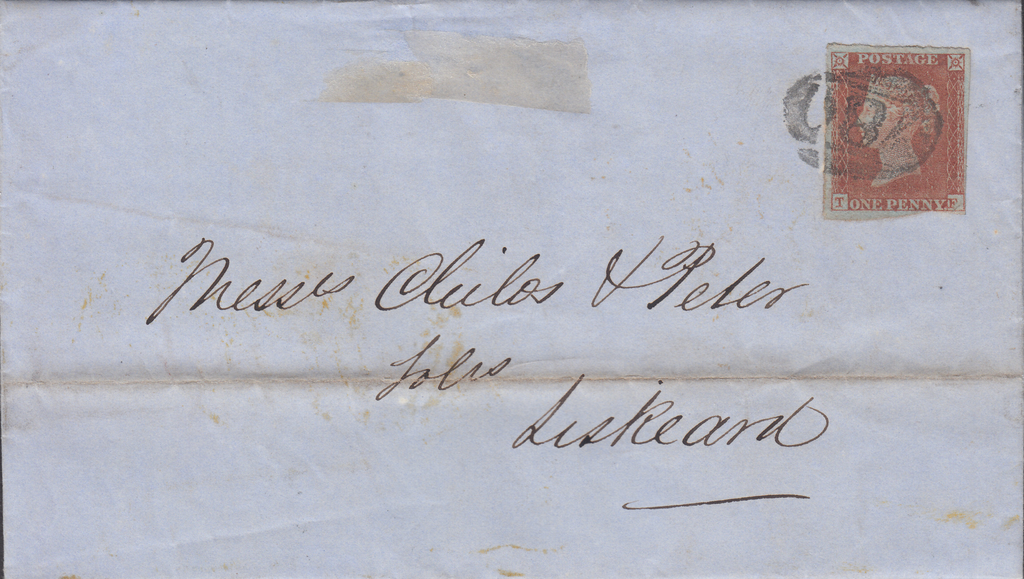 POSTAGE
T ONE PENNY F
Messrs Childs & Peter
Solrs
Liskeard